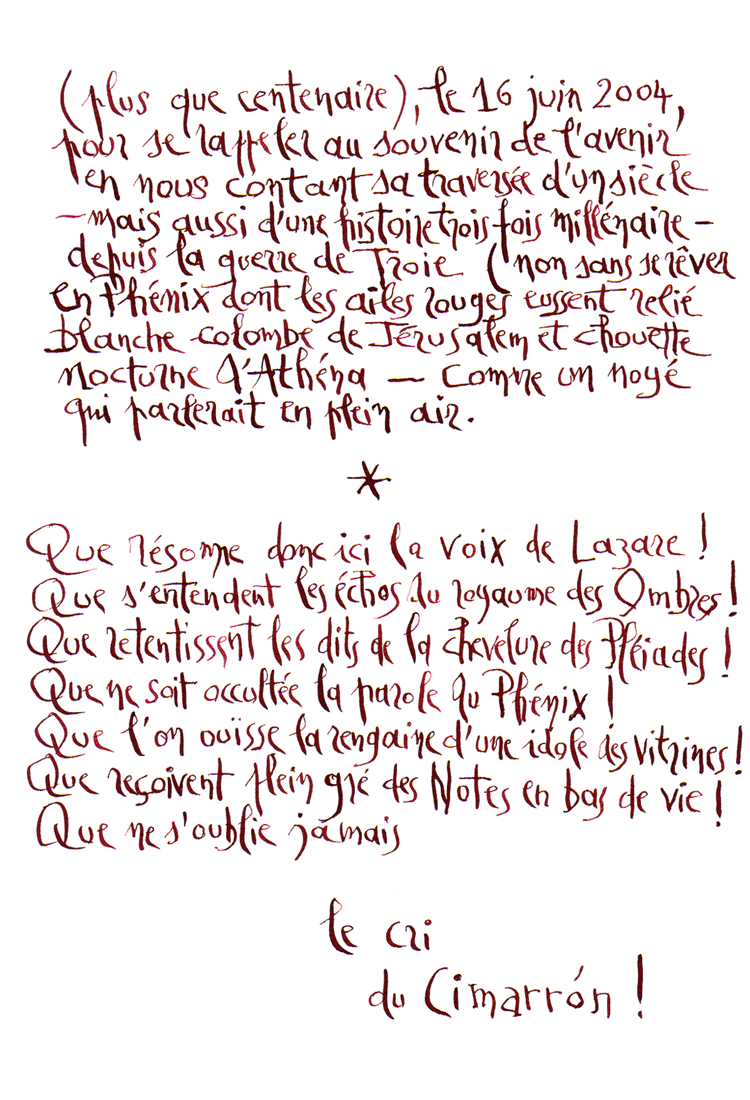 (plus que centenaire), le 16 juin 2004,
pour se rappeler au souvenir de l'avenir
en nous contant sa traversée d'un siècle
– mais aussi d'une histoire trois fois millénaire –
depuis la guerre de Troie (non sans se rêver
en Phénix dont les ailes rouges eussent relié
blanche colombe de Jérusalem et chouette
nocturne d'Athéna — comme un noyé
qui parlerait en plein air.
*
Que résonne donc ici la voix de Lazare !
Que s'entendent les échos du royaume des Ombres !
Que retentissent les dits de la chevelure des Pléiades !
Que ne soit occultée la parole du Phénix !
Que l'on ouïsse la rengaine d'une idole des vitrines !
Que reçoivent plein gré des Notes en bas de vie !
Que ne s'oublie jamais
le cri
du Cimarrón !